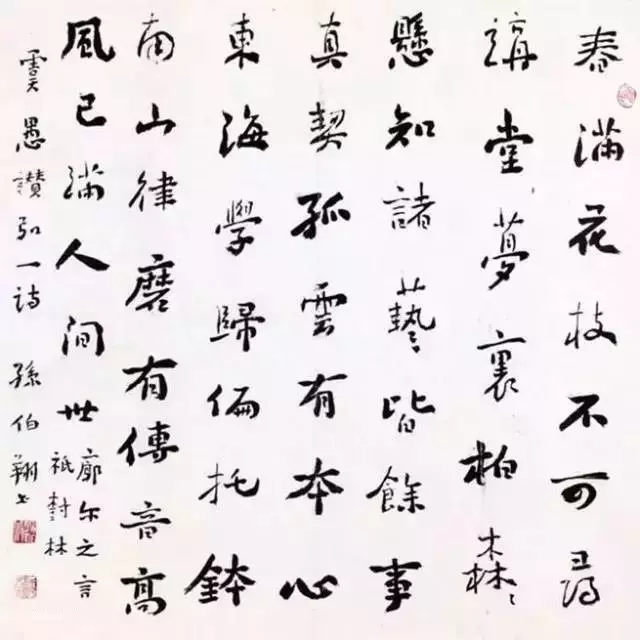 春满花枝不可尋
講堂夢裏柏森々
懸知諸藝皆餘事
真契孤雲有本心
東海學歸偏托鉢
南山律磨有傳音高
風已满人间世廓尔之言
祇封林
虞愚讚弘一诗 孫伯翔书